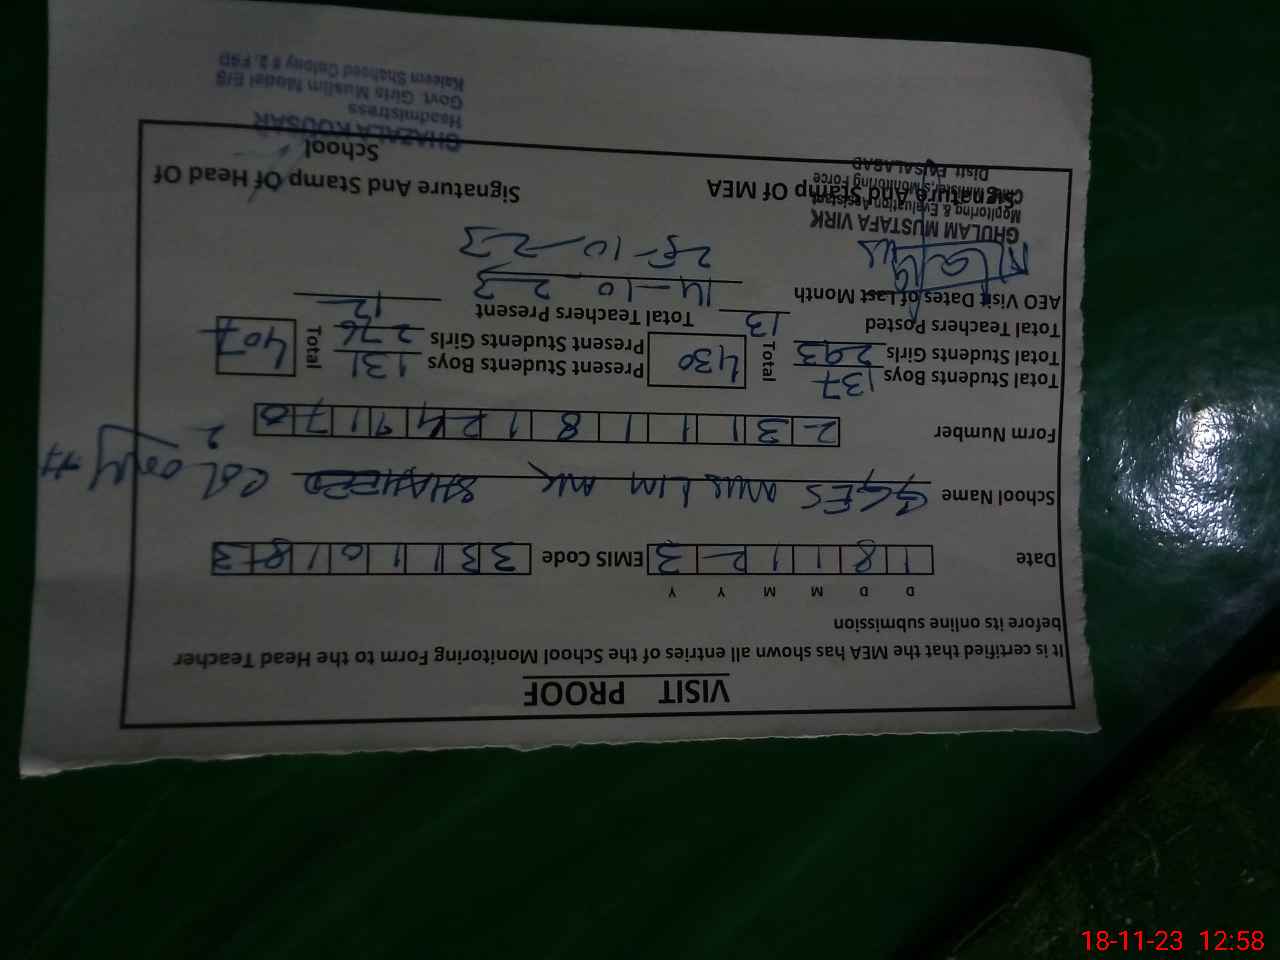 VISIT PROOF
It is certified that the MEA has shown all entries of the School Monitoring Form to the Head Teacher
before its online submission
D D M M Y Y
Date 1 8 1 1 2 3 EMIS Code 3 3 1 1 0 1 8 3
School Name GGES MUSLIM MK SHAHEED COLONY # 2
Form Number 2 3 1 1 1 8 1 2 4 9 1 7 0
Total Students Boys 137 Total 430 Present Students Boys 131 Total 407
Total Students Girls 293 Present Students Girls 276
Total Teachers Posted 13 Total Teachers Present 12
AEO Visit Dates of Last Month 14-10-23
25-10-23
GHULAM MUSTAFA VIRK
Monitoring & Evaluation Assistant
Chief Minister's Monitoring Force
Distt. FAISALABAD
Signature And Stamp Of MEA
Signature And Stamp Of Head Of
School
GHAZALA KOUSAR
Headmistress
Govt. Girls Muslim Model E/S
Kaleem Shaheed Colony # 2, FSD
18-11-23 12:58